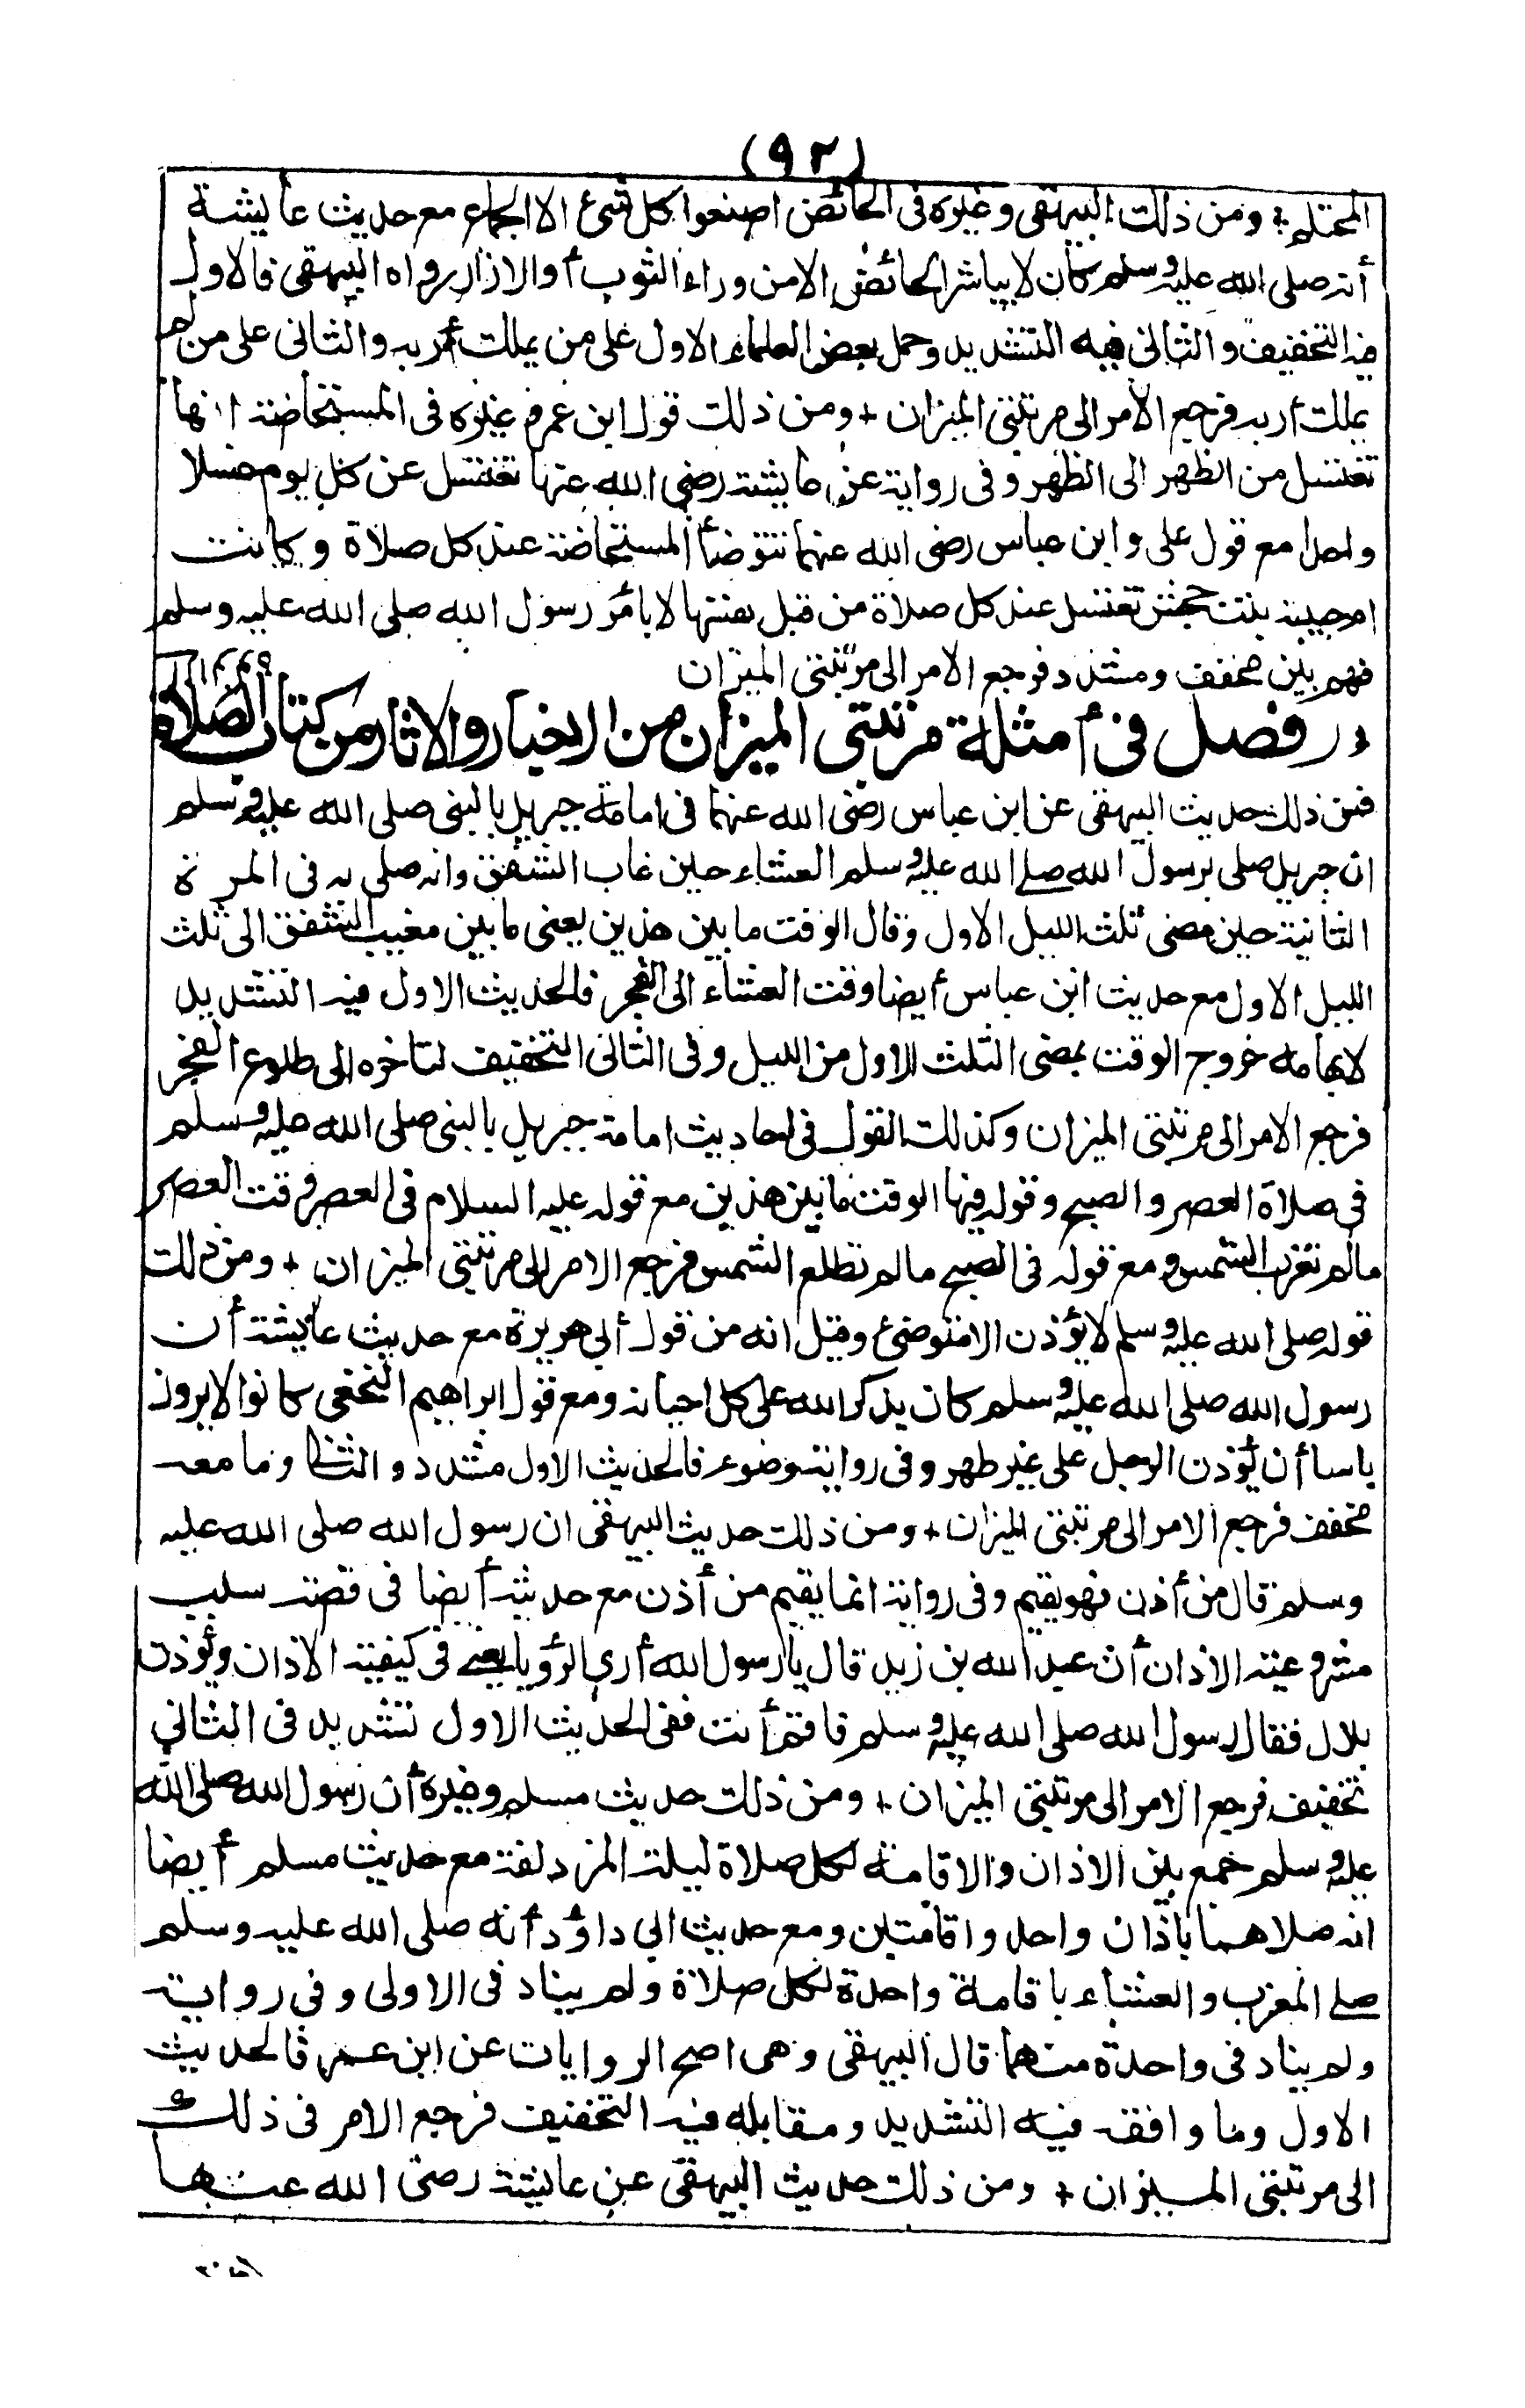 (٩٢)
المحتلم + ومن ذلك البيهقى وغيره فى الحائض اصنعوا كل شئ الا الجماع مع حديث عايشة
أنه صلى الله عليه وسلم كان لا يباشر الحائض الا من وراء الثوب أو الازار رواه البيهقى فالاول
فيه التخفيف والثانى فيه التشديد وحمل بعض العلماء الاول على من يملك أربه والثانى على من لم
يملك أربه فرجع الأمر الى مرتبتى الميزان + ومن ذلك قول ابن عمر وغيره فى المستحاضة انها
تغتسل من الظهر الى الظهر وفى رواية عن عايشة رضى الله عنها تغتسل عن كل يوم غسلا
واحدا مع قول على وابن عباس رضى الله عنهما تتوضأ المستحاضة عند كل صلاة وكانت
ام حبيبة بنت جحش تغتسل عند كل صلاة من قبل نفسها لا بأمر رسول الله صلى الله عليه وسلم
فهم بين مخفف ومشدد فرجع الامر الى مرتبتى الميزان
فصل فى أمثلة مرتبتى الميزان من الاخبار والاثار من كتاب الصلاة
فمن ذلك حديث البيهقى عن ابن عباس رضى الله عنهما فى امامة جبريل بالنبى صلى الله عليه وسلم
ان جبريل صلى برسول الله صلى الله عليه وسلم العشاء حين غاب الشفق وانه صلى به فى المرة
الثانية حين مضى ثلث الليل الاول وقال الوقت ما بين هذين يعنى ما بين مغيب الشفق الى ثلث
الليل الاول مع حديث ابن عباس أيضا وقت العشاء الى الفجر فالحديث الاول فيه التشديد
لابهامه خروج الوقت بمضى الثلث الاول من الليل وفى الثانى التخفيف لتاخره الى طلوع الفجر
فرجع الامر الى مرتبتى الميزان وكذلك القول فى احاديث امامة جبريل بالنبى صلى الله عليه وسلم
فى صلاة العصر والصبح وقوله فيها الوقت ما بين هذين مع قوله عليه السلام فى العصر وقت العصر
مالم تغرب الشمس ومع قوله فى الصبح مالم تطلع الشمس فرجع الامر الى مرتبتى الميزان + ومن ذلك
قوله صلى الله عليه وسلم لا يؤذن الا متوضئ وقيل انه من قول أبي هريرة مع حديث عائشة أن
رسول الله صلى الله عليه وسلم كان يذكر الله على كل احيانه ومع قول ابراهيم النخعى كانوا لا يرون
باسا أن يؤذن الرجل على غير طهر وفى رواية وضوء فالحديث الاول مشدد والثانى وما معه
مخفف فرجع الامر الى مرتبتى الميزان + ومن ذلك حديث البيهقى ان رسول الله صلى الله عليه
وسلم قال من أذن فهو يقيم وفى رواية انما يقيم من أذن مع حديثه أيضا فى قصة سبب
مشروعية الاذان أن عبد الله بن زيد قال يا رسول الله أرى الرؤيا يعنى فى كيفية الاذان ويؤذن
بلال فقال رسول الله صلى الله عليه وسلم فاقم أنت ففى الحديث الاول تشديد فى الثانى
تخفيف فرجع الامر الى مرتبتى الميزان + ومن ذلك حديث مسلم وغيره أن رسول الله صلى الله
عليه وسلم جمع بين الاذان والاقامة لكل صلاة ليلة المزدلفة مع حديث مسلم أيضا
انه صلاهما باذان واحد واقامتين ومع حديث ابي داؤد أنه صلى الله عليه وسلم
صلى المغرب والعشاء باقامة واحدة لكل صلاة ولم يناد فى الاولى وفى رواية
ولم يناد فى واحدة منهما قال البيهقى وهى اصح الروايات عن ابن عمر فالحديث
الاول وما وافقه فيه التشديد ومقابله فيه التخفيف فرجع الامر فى ذلك
الى مرتبتى الميزان + ومن ذلك حديث البيهقى عن عائشة رضى الله عنها